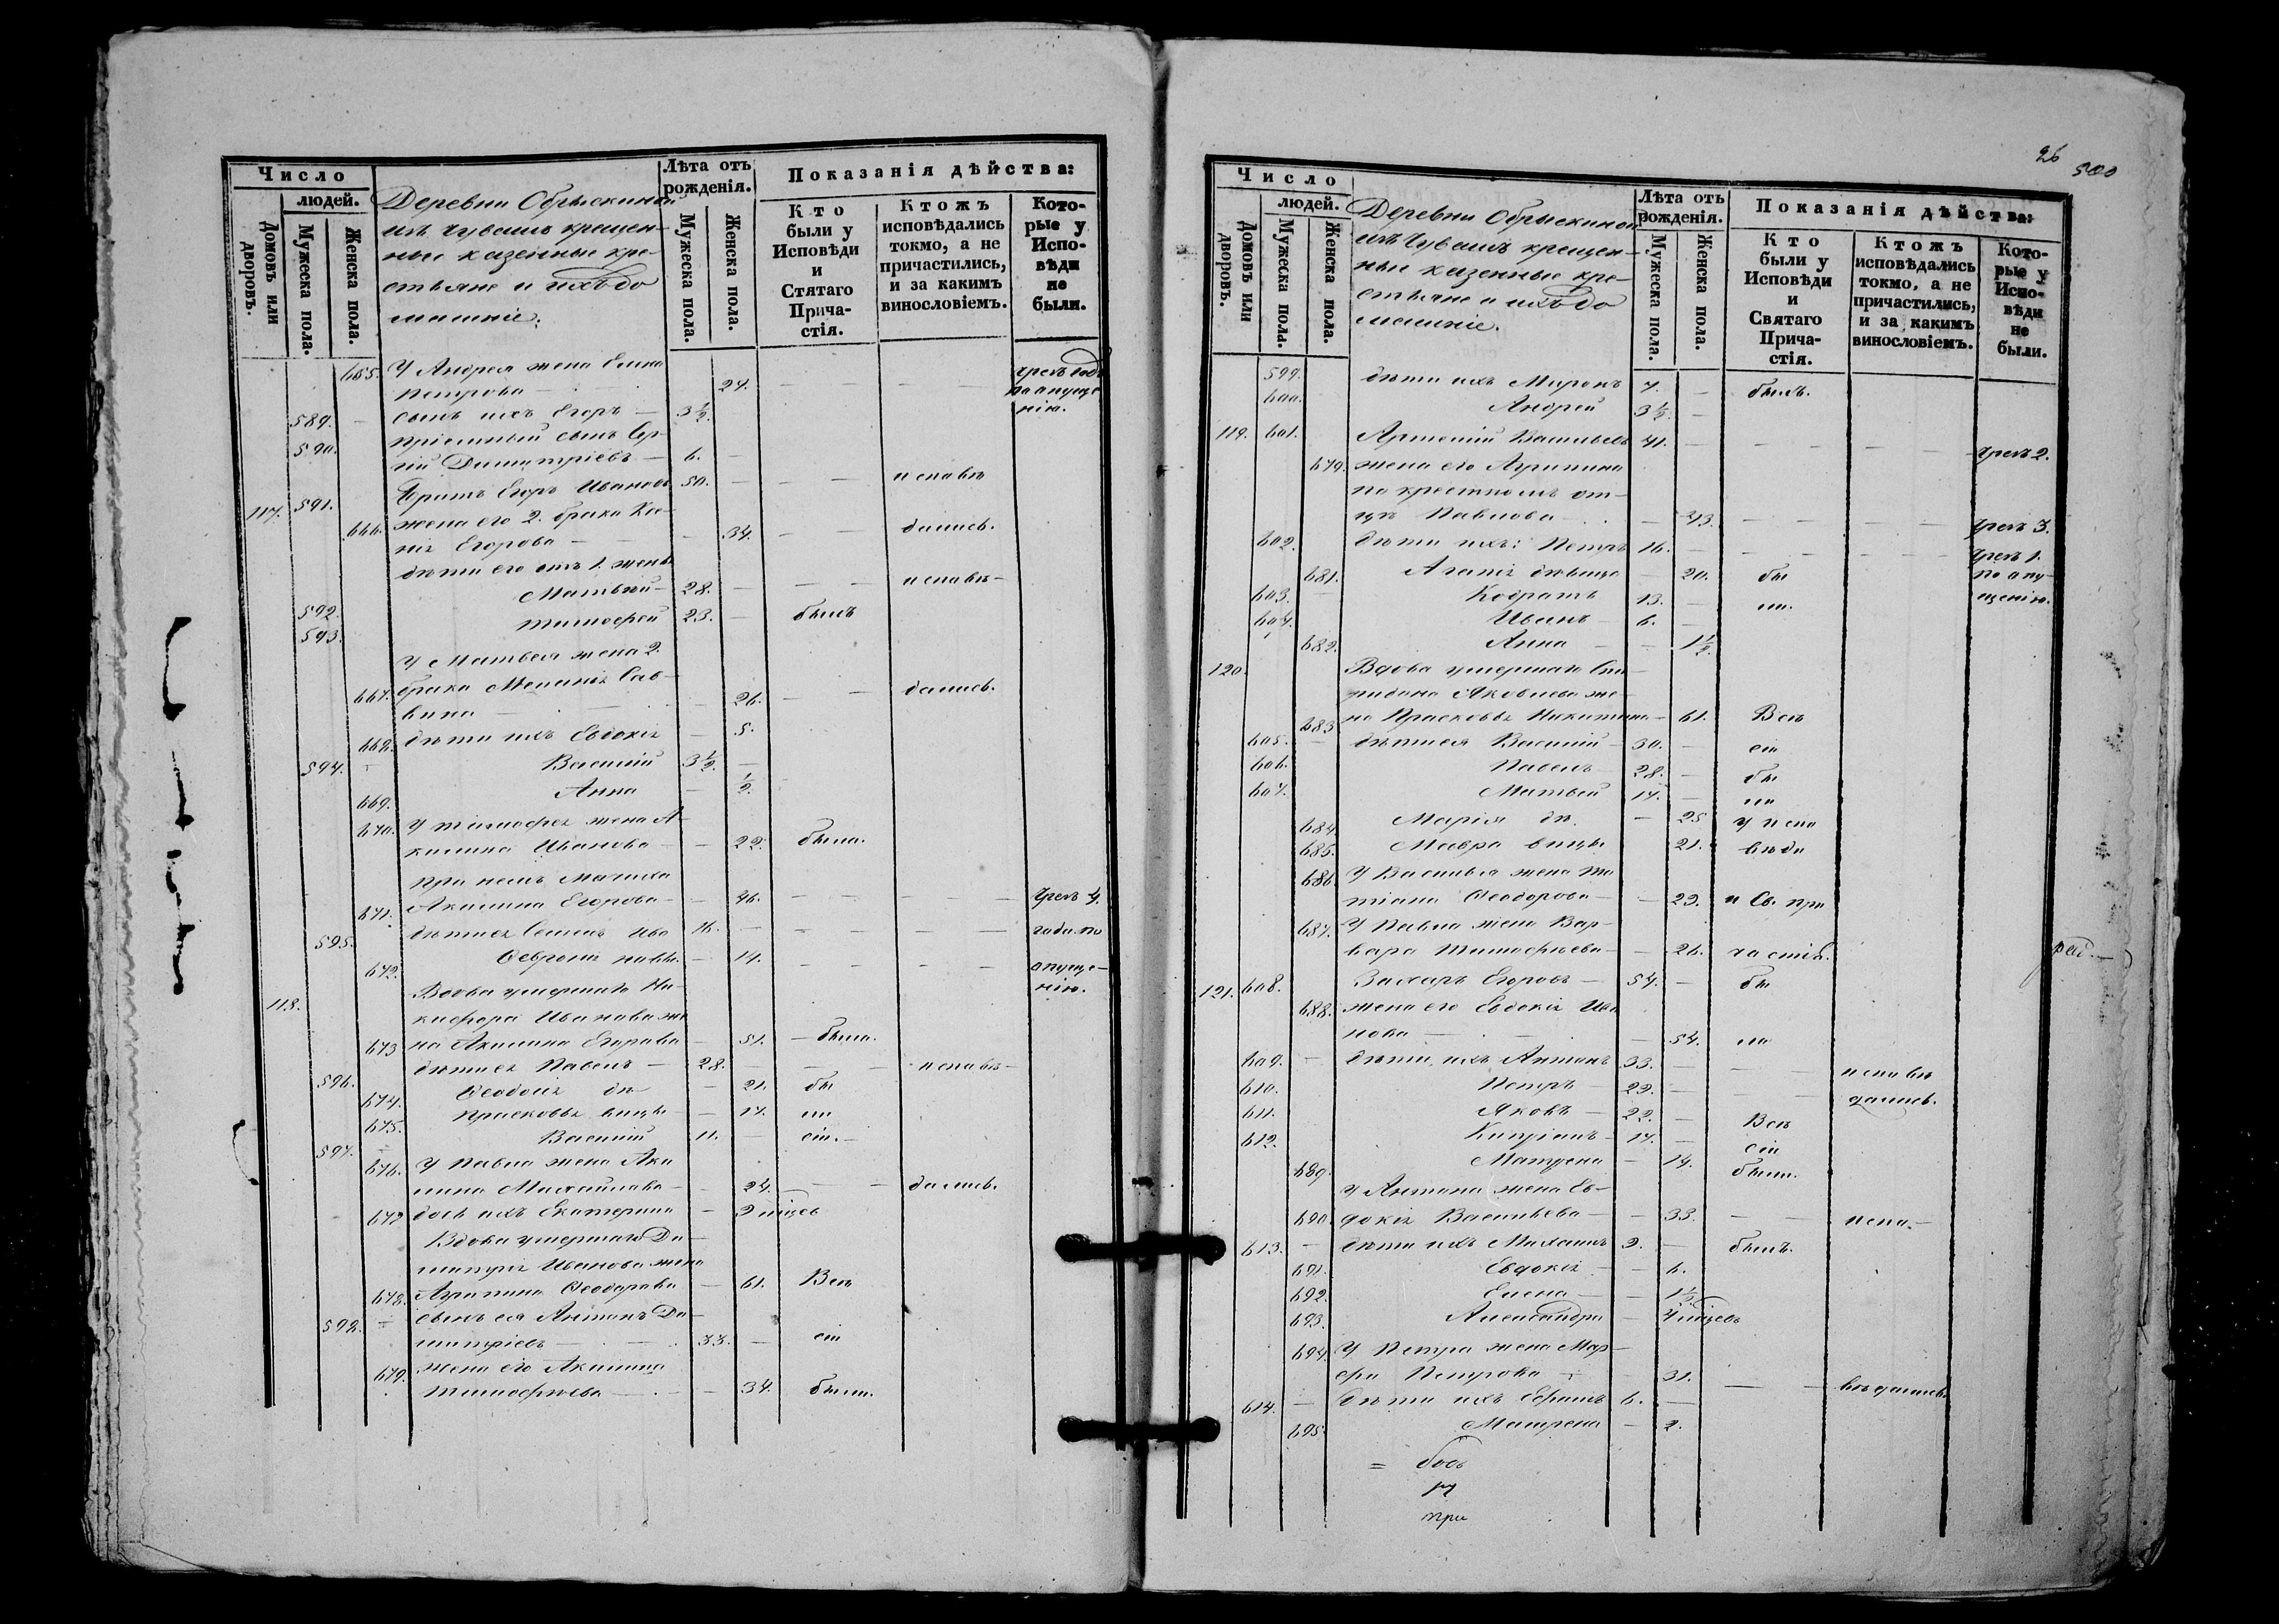 Число
людей.
Домовъ или дворовъ.
Мужеска пола.
Женска пола.
Деревни Обрыскиной
изъ Чувашъ крещен-
ные казенные кре-
стьяне и ихъ до
машніе:
Лѣта отъ рожденія.
Мужеска пола.
Женска пола.
Показанія дѣйства:
Кто были у Исповѣди и Стятаго Прича-стія.
Ктожъ исповѣдались токмо, а не причастились, и за какимъ винословіемъ.
Кото-рые у Испо-вѣди не были.
665. У Андрея жена Елена
Петрова — 24. — — —
по опуще
нію.
589. — сынъ ихъ Егоръ — 3 1/2.
590. пріемный сынъ Сер-
гій Димитріевъ — 6. —
117. 591. Братъ Егоръ Ивановъ 50. — — — исповѣ
666. жена его 2. брака Ка-
нія Егорова — — — 34. — — дались.
дѣти его отъ 1. жены
592. Матвѣй — 28. — — — исповѣ-
593. Тимофей 23. — былъ
У Матвея жена 2.
667. брака Меланія Сав-
вина — — 26. — — дались.
668. дѣти ихъ Евдокія — 5.
594. Василій 3 1/2. —
669. Анна — 1/2.
670. У Тимофея жена А-
килина Иванова — — 22. была.
при немъ мачиха
671. Акилина Егорова — — 46. — — — — чрезъ 4.
595. 16. — — — — — года по
672. Феврония — 14. — — — — опуще-
нію.
118. Вдова умершаго Ни-
кифора Иванова же
673. на Акилина Егорова — 51. — была.
596. дѣти ея Павелъ — 28. — — — исповѣ-
674. Феодосія дѣ — 21. бы
675. Прасковья вицы — 17. ли
597. Василій 11. — сіи. —
676. У Павла жена Аки
лина Михайлова — — 24. — — дались.
677. дочь ихъ Екатерина — 9 мцсв
Вдова умершаго Ди-
митрія Иванова жена
678. Агрипина Феодорова — 61. Всѣ
598. — сынъ ея Антонъ Ди-
митріевъ — — 33. — сіи
679. жена его Акилина
Тимофѣева — — — 34. были.
26
500
Число
людей.
Домовъ или дворовъ.
Мужеска пола.
Женска пола.
Деревни Обрыскиной
изъ Чувашъ крещен-
ные казенные кре-
стьяне и ихъ до
машніе.
Лѣта отъ рожденія.
Мужеска пола.
Женска пола.
Показанія дѣйства:
Кто были у Исповѣди и Святаго Прича-стія.
Ктожъ исповѣдались токмо, а не причастились, и за какимъ винословіемъ.
Кото-рые у Испо-вѣди не были.
599. дѣти ихъ Миронъ 7. — былъ.
600. Андрей 3 1/2. —
119. 601. Артемій Васильевъ 41. — — — — чрезъ 2.
жена его Агрипина
по крестномъ от-
цѣ Павлова — — 43. — — — — чрезъ 3.
602. дѣти ихъ: Петръ 16. — — — — чрезъ 1.
681. Агапія дѣвица — 20. бы по опу-
603. Кодратъ 13. — ли. щенію.
604. Иванъ 6. —
682. Анна — — 1 1/2.
120. Вдова умершаго Спи-
ридона Яковлева же-
683 на Прасковья Никитина — 61. Всѣ
605. — дѣти ея Василій — 30. — сіи
606. Павелъ 28. — бы
607. Матвей 17. — ли
684. Марія дѣ. — 25 у испо
685. Мавра вицы 21. вѣди
686 У Василья жена Та
тіана Феодорова — — 29. и Св. при
687. У Павла жена Вар-
вара Тимофѣева — — 26. частія.
121. 608. Захаръ Егоровъ — 54. — бы
688. жена его Евдокія Ива
нова — — — 54. ли
609. — дѣти ихъ Антонъ 33. — — — исповѣ
610. Петръ — 29. — — — дались.
611. Яковъ — 22. — Всѣ
612. Кипріанъ — 17. — сіи
689. Матрена — 14. были.
У Антона жена Ев-
690. докія Васильева — — 33. — — испо. —
613. — дѣти ихъ Михаилъ 9. — былъ.
691. Евдокія — — 6.
692. Елена — — 1 1/2.
693. Александра — 4 мцсвъ
694. У Петра жена Мар-
фа Петрова — 31. — — вѣдались.
614. — дѣти ихъ Ефимъ 6. —
695. Матрена — 2.